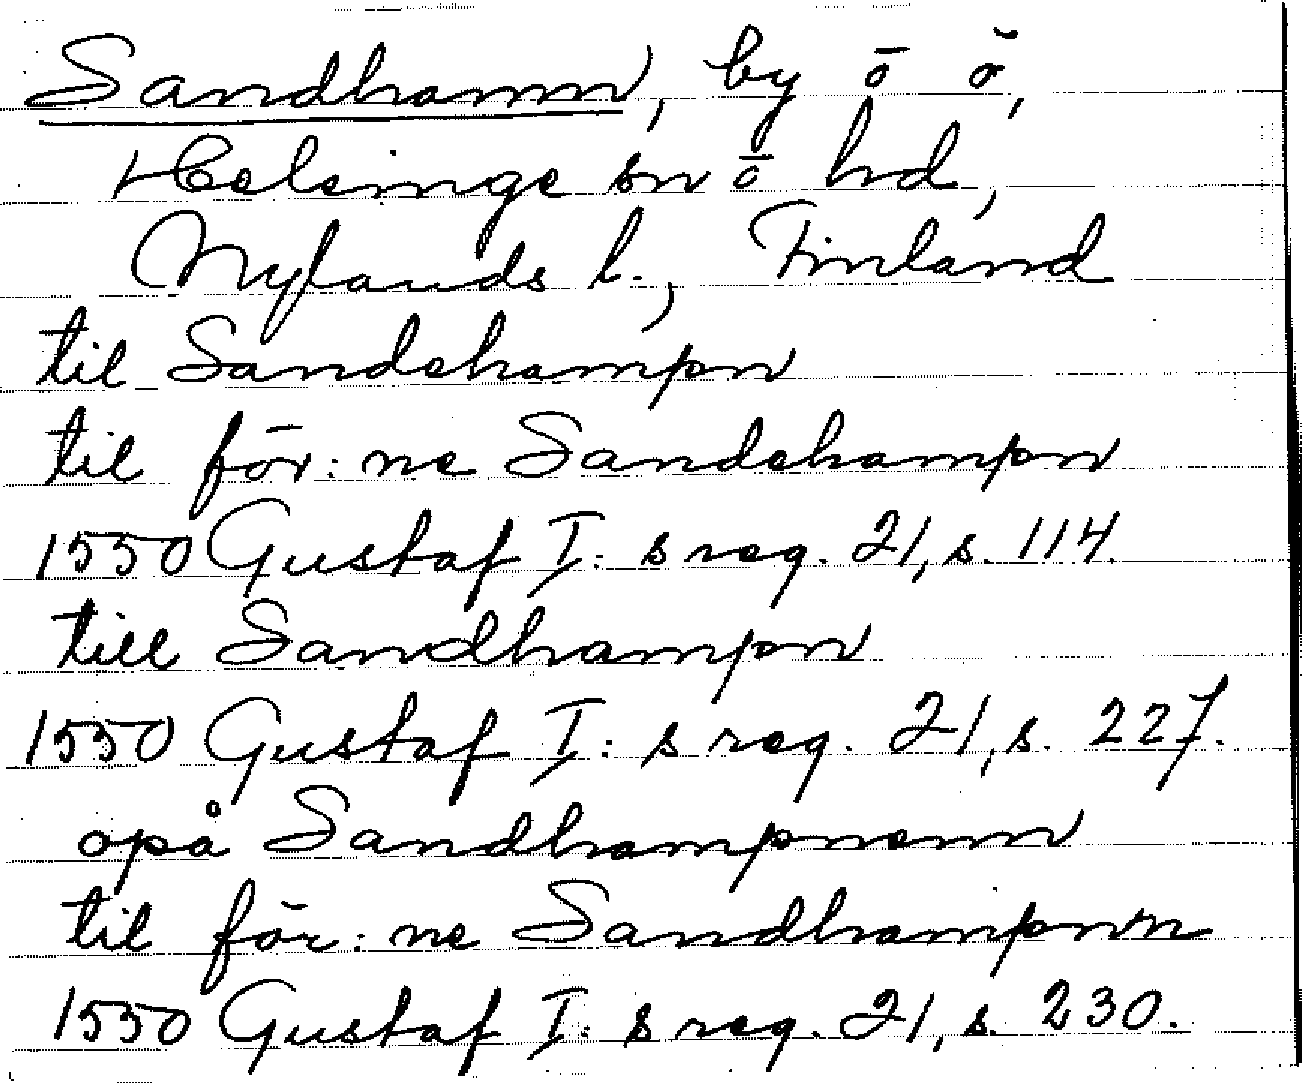 Sandhamn, by ō ö,
Helsinge sn ō hd,
Nylands l., Finland
til Sandehampn
til för: ne Sandehampn
1550 Gustaf I: s reg. 21, s. 114.
till Sandhampn
1550 Gustaf I: s reg. 21, s. 227.
opå Sandhampnenn
til för: ne Sandhampnn
1550 Gustaf I: s reg. 21, s. 230.